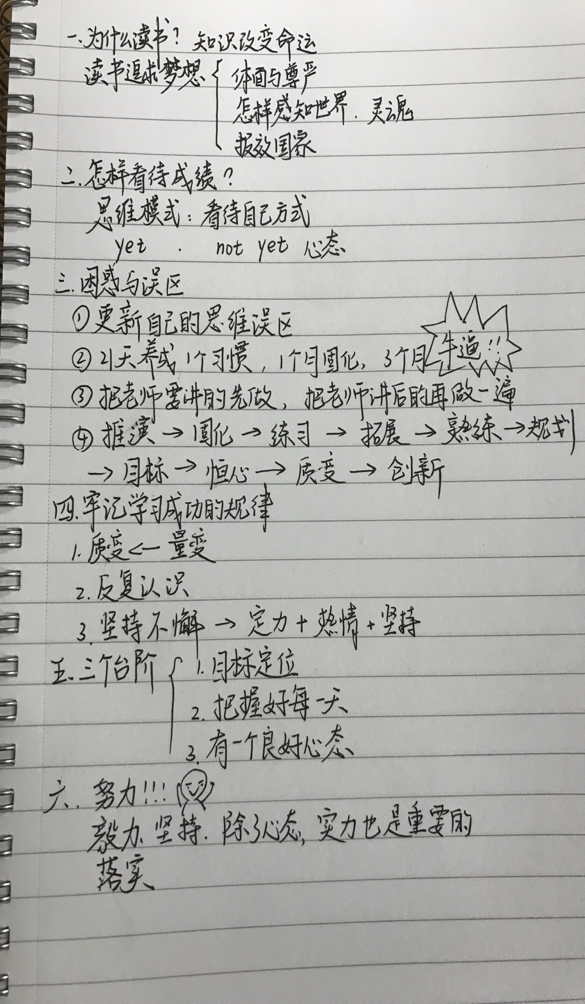 一.为什么读书? 知识改变命运
读书追求梦想 { 体面与尊严
怎样感知世界.灵魂
报效国家
二.怎样看待成绩?
思维模式:看待自己方式
yet . not yet 心态
三.困惑与误区
①更新自己的思维误区
②21天养成1个习惯,1个月固化,3个月牛逼!!
③把老师要讲的先做,把老师讲后的再做一遍
④推演→固化→练习→拓展→熟练→规划
→目标→恒心→质变→创新
四.牢记学习成功的规律
1.质变←量变
2.反复认识
3.坚持不懈→定力+热情+坚持
五.三个台阶 { 1.目标定位
2.把握好每一天
3.有一个良好心态
六.努力!!!
毅力、坚持.除了心态,实力也是重要的
落实